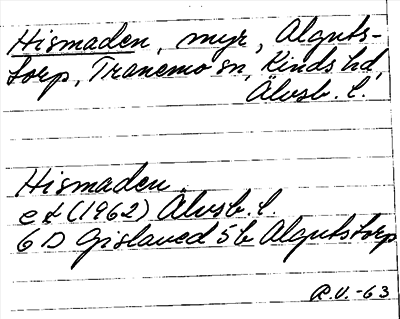 Hismaden, myr, Alguts-
torp, Tranemo sn, Kinds hd,
Älvsb. l.
Hismaden.
ek (1962) Älvsb. l.
6 D Gislaved 5b Algutstorp
R.V.-63